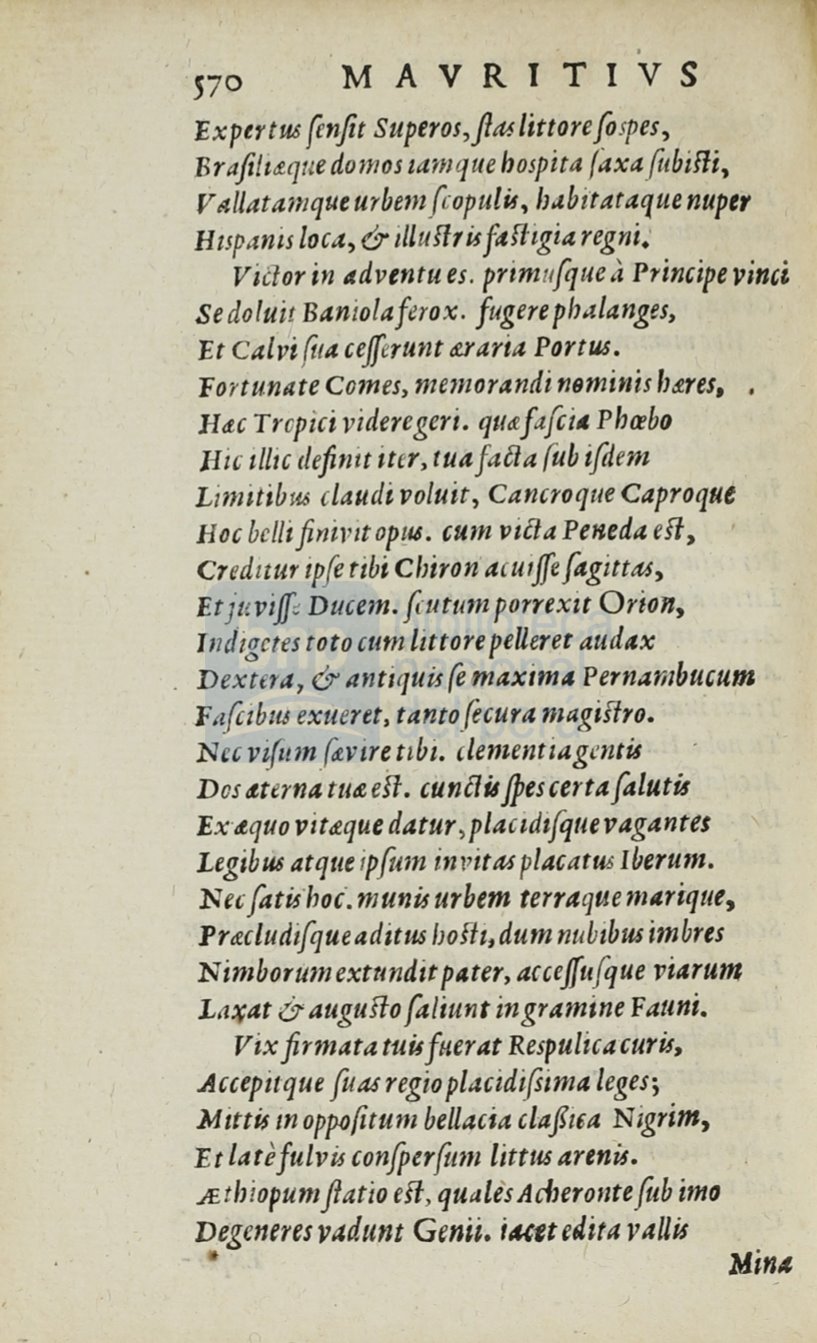 570 MAVRITIVS
Expertus ſenſit Superos, ſtas littore ſospes,
Braſiliæque domos iamque hospita ſaxa ſubiſti,
Vallatamque urbem ſcopulis, habitataque nuper
Hispanis loca, & illuſtris faſtigia regni.
Victor in adventu es. primuſque à Principe vinci
Se doluit Baniola ferox. fugere phalanges,
Et Calvi ſua ceſſerunt æraria Portus.
Fortunate Comes, memorandi nominis hæres,
Hæc Tropici videre geri. quæ faſcia Phœbo
Hic illic definit iter, tua facta ſub iſdem
Limitibus claudi voluit, Cancroque Caproque
Hoc belli finivit opus. cum victa Peneda eſt,
Creditur ipſe tibi Chiron acuiſſe ſagittas,
Et juviſſe Ducem. ſcutum porrexit Orion,
Indigetes toto cum littore pelleret audax
Dextera, & antiquis ſe maxima Pernambucum
Faſcibus exueret, tanto ſecura magiſtro.
Nec viſum ſævire tibi. clementia gentis
Dos æterna tuæ eſt. cunctis ſpes certa ſalutis
Ex æquo vitæque datur, placidiſque vagantes
Legibus atque ipſum invitas placatus Iberum.
Nec ſatis hoc. munis urbem terraque marique,
Præcludiſque aditus hoſti, dum nubibus imbres
Nimborum extundit pater, acceſſuſque viarum
Laxat & auguſto ſaliunt in gramine Fauni.
Vix firmata tuis fuerat Respulica curis,
Accepitque ſuas regio placidiſsima leges;
Mittis in oppoſitum bellacia claßica Nigrim,
Et latè fulvis conſperſum littus arenis.
Æthiopum ſtatio eſt, qualès Acheronte ſub imo
Degeneres vadunt Genii. iacet edita vallis
Mina